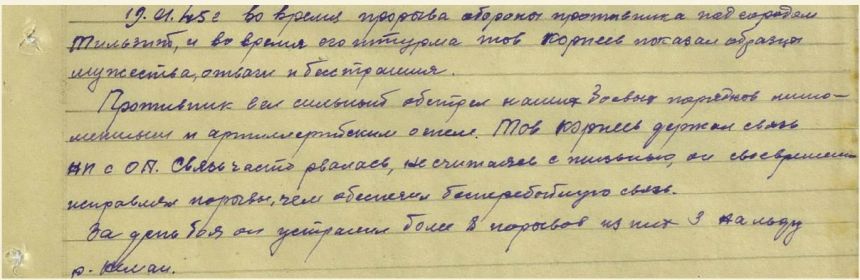 19.01.45г во время прорыва обороны противника под городом
Тильзит, и во время его штурма тов Корнеев показал образцы
мужества, отваги и бесстрашия.
Противник вел сильный обстрел наших боевых порядков мино-
метным и артиллерийским огнем. Тов Корнеев держал связь
НП с ОП. Связь часто рвалась, не считаясь с жизнью, он своевременно
исправлял порывы, чем обеспечил бесперебойную связь.
За день боя он устранил более 8 порывов из них 3 на льду
р. Неман.